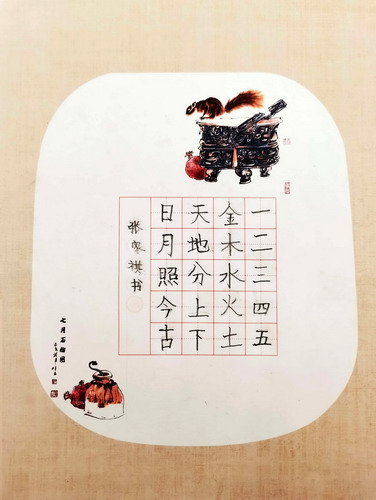 一二三四五
金木水火土
天地分上下
日月照今古
张家祺书
七月石榴图